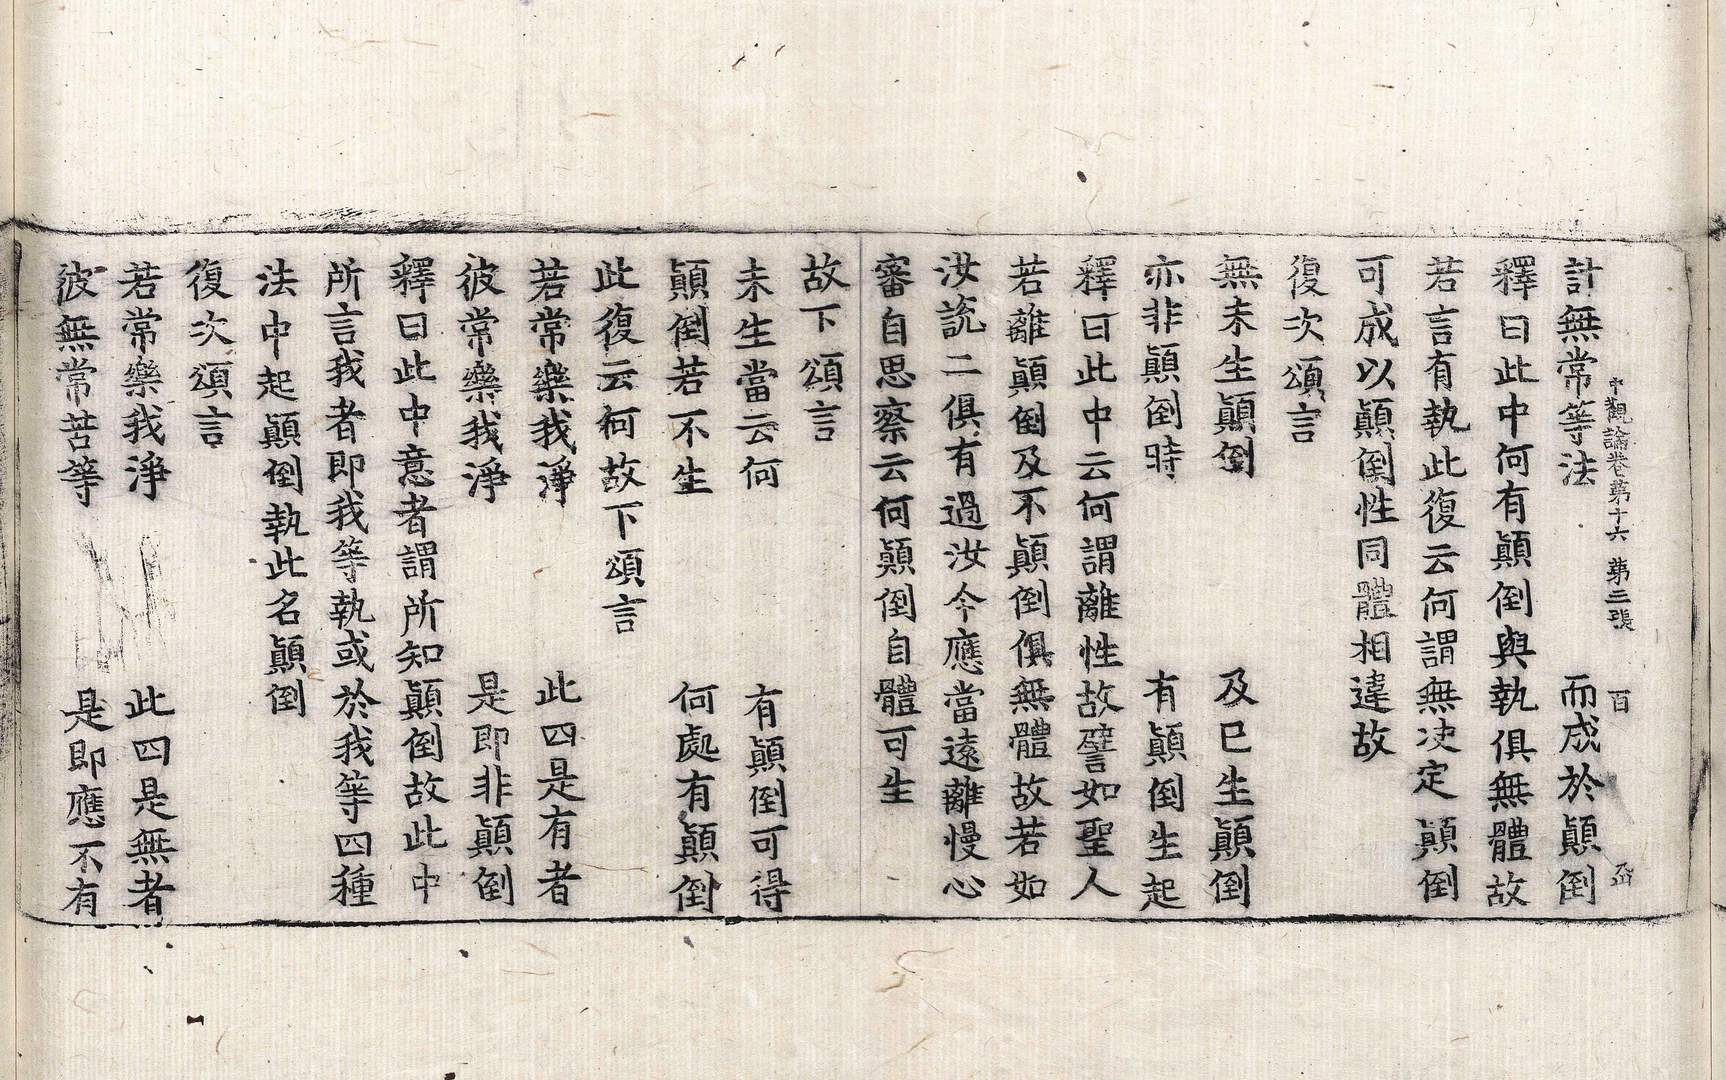 中觀論卷第十六 第三張 百
計無常等法 而成於顚倒
釋曰此中何有顚倒與執俱無體故
若言有執此復云何謂無决定顚倒
可成以顚倒性同體相違故
復次頌言
無未生顚倒 及已生顚倒
亦非顚倒時 有顚倒生起
釋曰此中云何謂離性故譬如聖人
若離顚倒及不顚倒俱無體故若如
汝說二俱有過汝今應當遠離慢心
審自思察云何顚倒自體可生
故下頌言
未生當云何 有顚倒可得
顚倒若不生 何處有顚倒
此復云何故下頌言
若常樂我淨 此四是有者
彼常樂我淨 是即非顚倒
釋曰此中意者謂所知顚倒故此中
所言我者即我等執或於我等四種
法中起顚倒執此名顚倒
復次頌言
若常樂我淨 此四是無者
彼無常苦等 是即應不有